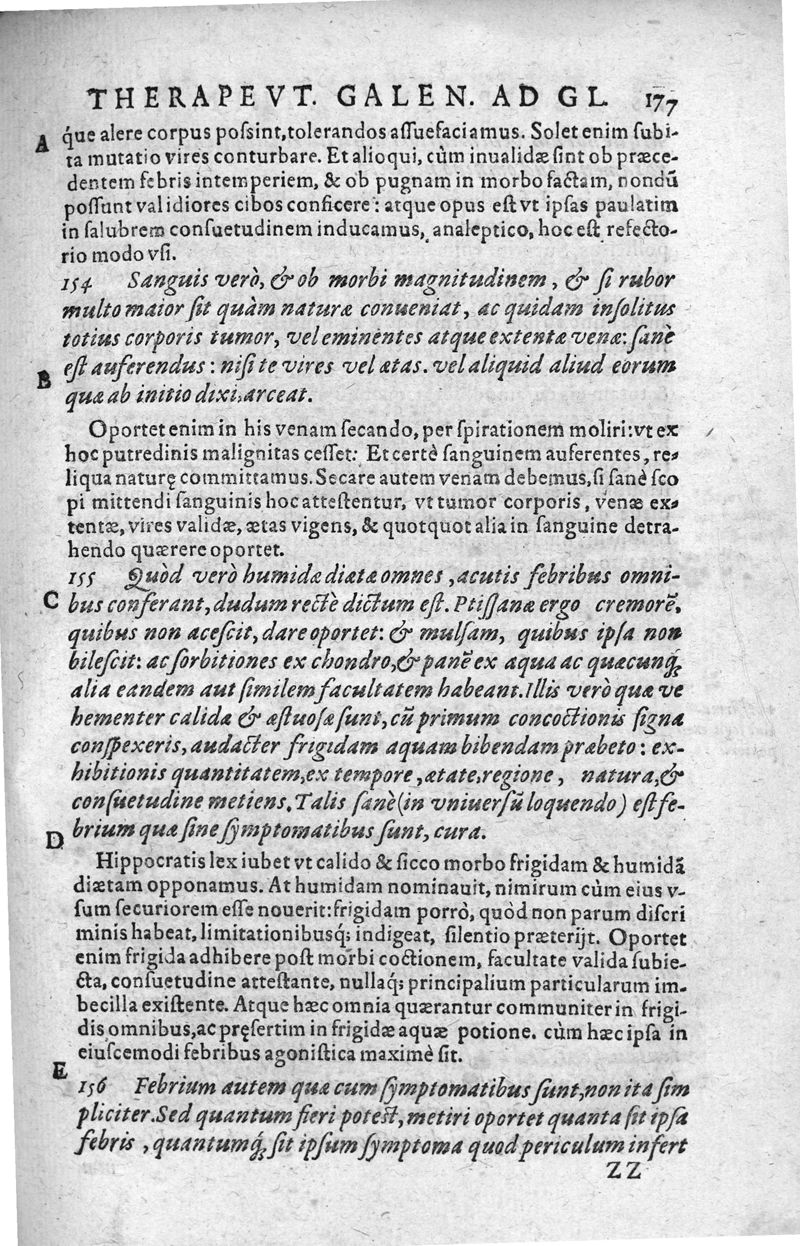 THERAPEVT. GALEN. AD GL. 177
A q́ue alere corpus poſsint, tolerandos aſſuefaciamus. Solet enim ſubi-
ta mutatio vires conturbare. Et alioqui, cùm inualidæ ſint ob præce-
dentem febris intemperiem, & ob pugnam in morbo factam, nondū
poſſunt validiores cibos conficere: atque opus eſt vt ipſas paulatim
in ſalubrem conſuetudinem inducamus, analeptico, hoc eſt refecto-
rio modo vſi.
154 Sanguis verò, & ob morbi magnitudinem, & ſi rubor
multo maior ſit quàm naturæ conueniat, ac quidam inſolitus
totius corporis tumor, vel eminentes atque extentæ venæ: ſanè
B eſt auferendus: niſi te vires vel ætas. vel aliquid aliud eorum
quæ ab initio dixi, arceat.
Oportet enim in his venam ſecando, perſpirationem moliri: vt ex
hoc putredinis malignitas ceſſet: Et certè ſanguinem auferentes, re-
liqua naturę committamus. Secare autem venam debemus, ſi ſanè ſco
pi mittendi ſanguinis hoc atteſtentur, vt tumor corporis, venæ ex-
tentæ, vires validæ, ætas vigens, & quotquot alia in ſanguine detra-
hendo quærere oportet.
155 Quòd verò humidæ diætæ omnes, acutis febribus omni-
C bus conferant, dudum rectè dictum eſt. Ptiſſanæ ergo cremorē,
quibus non aceſcit, dare oportet: & mulſam, quibus ipſa non
bileſcit: ac ſorbitiones ex chondro, & panē ex aqua ac quæcunq́;
alia eandem aut ſimilem facultatem habeant. Illis verò quæ ve
hementer calidæ & æſtuoſæ ſunt, cū primum concoctionis ſigna
conſpexeris, audacter frigidam aquam bibendam præbeto: ex-
hibitionis quantitatem, ex tempore, ætate, regione, natura, &
conſuetudine metiens. Talis ſanè (in vniuerſū loquendo) eſt fe-
D brium quæ ſine ſymptomatibus ſunt, cura.
Hippocratis lex iubet vt calido & ſicco morbo frigidam & humidā
diætam opponamus. At humidam nominauit, nimirum cùm eius v-
ſum ſecuriorem eſſe nouerit: frigidam porrò, quòd non parum diſcri
minis habeat, limitationibusq́; indigeat, ſilentio præterijt. Oportet
enim frigida adhibere poſt morbi coctionem, facultate valida ſubie-
cta, conſuetudine atteſtante, nullaq́; principalium particularum im-
becilla exiſtente. Atque hæc omnia quærantur communiter in frigi-
dis omnibus, ac pręſertim in frigidæ aquæ potione. cùm hæc ipſa in
eiuſcemodi febribus agoniſtica maximè ſit.
E 156 Febrium autem quæ cum ſymptomatibus ſunt, non ita ſim
pliciter. Sed quantum fieri poteſt, metiri oportet quanta ſit ipſa
febris, quantumq́; ſit ipſum ſymptoma quod periculum infert
ZZ